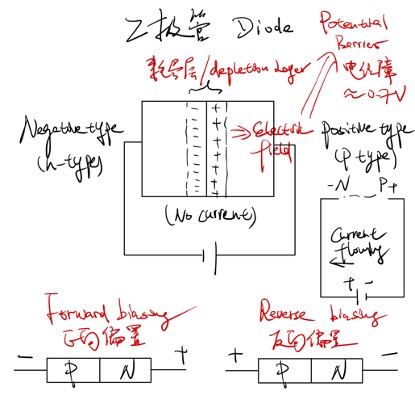 二极管 Diode
Potential
Barrier
电位障
≈0.7V
耗尽层/depletion layer
Negative type
(n-type)
- +
- +
- +
- +
- +
- +
- +
⇒ Electric
field
Positive type
(P type)
(No current)
-N P+
Current
flowing
←
+ -
Forward biasing
正向偏置
Reverse biasing
反向偏置
- P N +
+ P N -